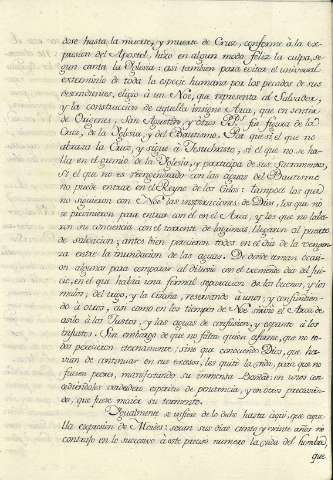 dose hasta la muerte, y muerte de Cruz, conforme á la ex-
presion del Apostol, hizo en algun modo feliz la culpa, se-
gun canta la Iglesia: asi tambien para evitar el universal
exterminio de toda la especie humana por los pecados de sus
descendientes, eligio á un Noé, que representa al Salvador,
y la construccion de aquella insigne Arca, que en sentir
de Origenes, San Agustin, y otros PP. fue figura de la
Cruz, de la Iglesia, y del Bautismo. Por que si el que no
abraza la Cruz, y sigue á Jesuchristo, si el que no se ha-
lla en el gremio de la Iglesia, y participa de sus Sacramentos,
si el que no es reengendrado con las aguas del Bautismo
no puede entrar en el Reyno de los Cielos: tampoco los que
no siguieron con Noé las instrucciones de Dios, los que no
se previnieron para entrar con él en el Arca, y los que no laba-
ron su conciencia con el torrente de lagrimas, llegaron al puerto
de salvacion; antes bien perecieron todos en el dia de la vengan-
za entre la inundacion de las aguas. De donde toman ocasi-
on algunos para comparar al diluvio con el tremendo dia del jui-
cio, en el que habrá una formal separacion de los buenos, y los
malos, del trigo, y la cizaña, reservando á unos, y confundien-
do á otros, asi como en los tiempos de Noé sirvió el Arca de
asilo á los Justos, y las aguas de confusion, y espanto á los
injustos. Sin embargo de que no faltan quien afirme, que no to-
dos perecieron eternamente, sino que conociendo Dios, que ha-
vian de continuar en sus excesos, les quitó la vida, para que no
fuesen peores, manifestando su inmensa Bondad: en unos con-
cediendoles verdadero espiritu de penitencia, y en otros precavien-
do, que fuese mayor su tormento.
Igualmente se infiere de lo dicho hasta aqui, que aque-
lla expresion de Moises: seran sus dias ciento y veinte años no
contrajo en lo succesivo á este preciso numero la vida del hombre
que